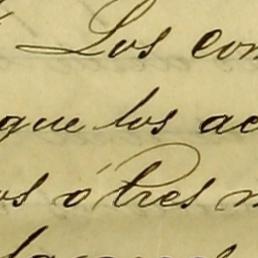 Los con
que los ac
os ó tres m